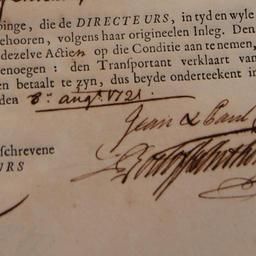 binge, die de DIRECTEURS, in tyd en wyle
ehooren, volgens haar origineelen Inleg. Den
dezelve Actien op die Conditie aan te nemen,
enoegen: den Transportant verklaart van
en betaalt te zyn, dus beyde onderteekent in
den 8: augt. 1721.
Jean & Paul
schrevene
URS